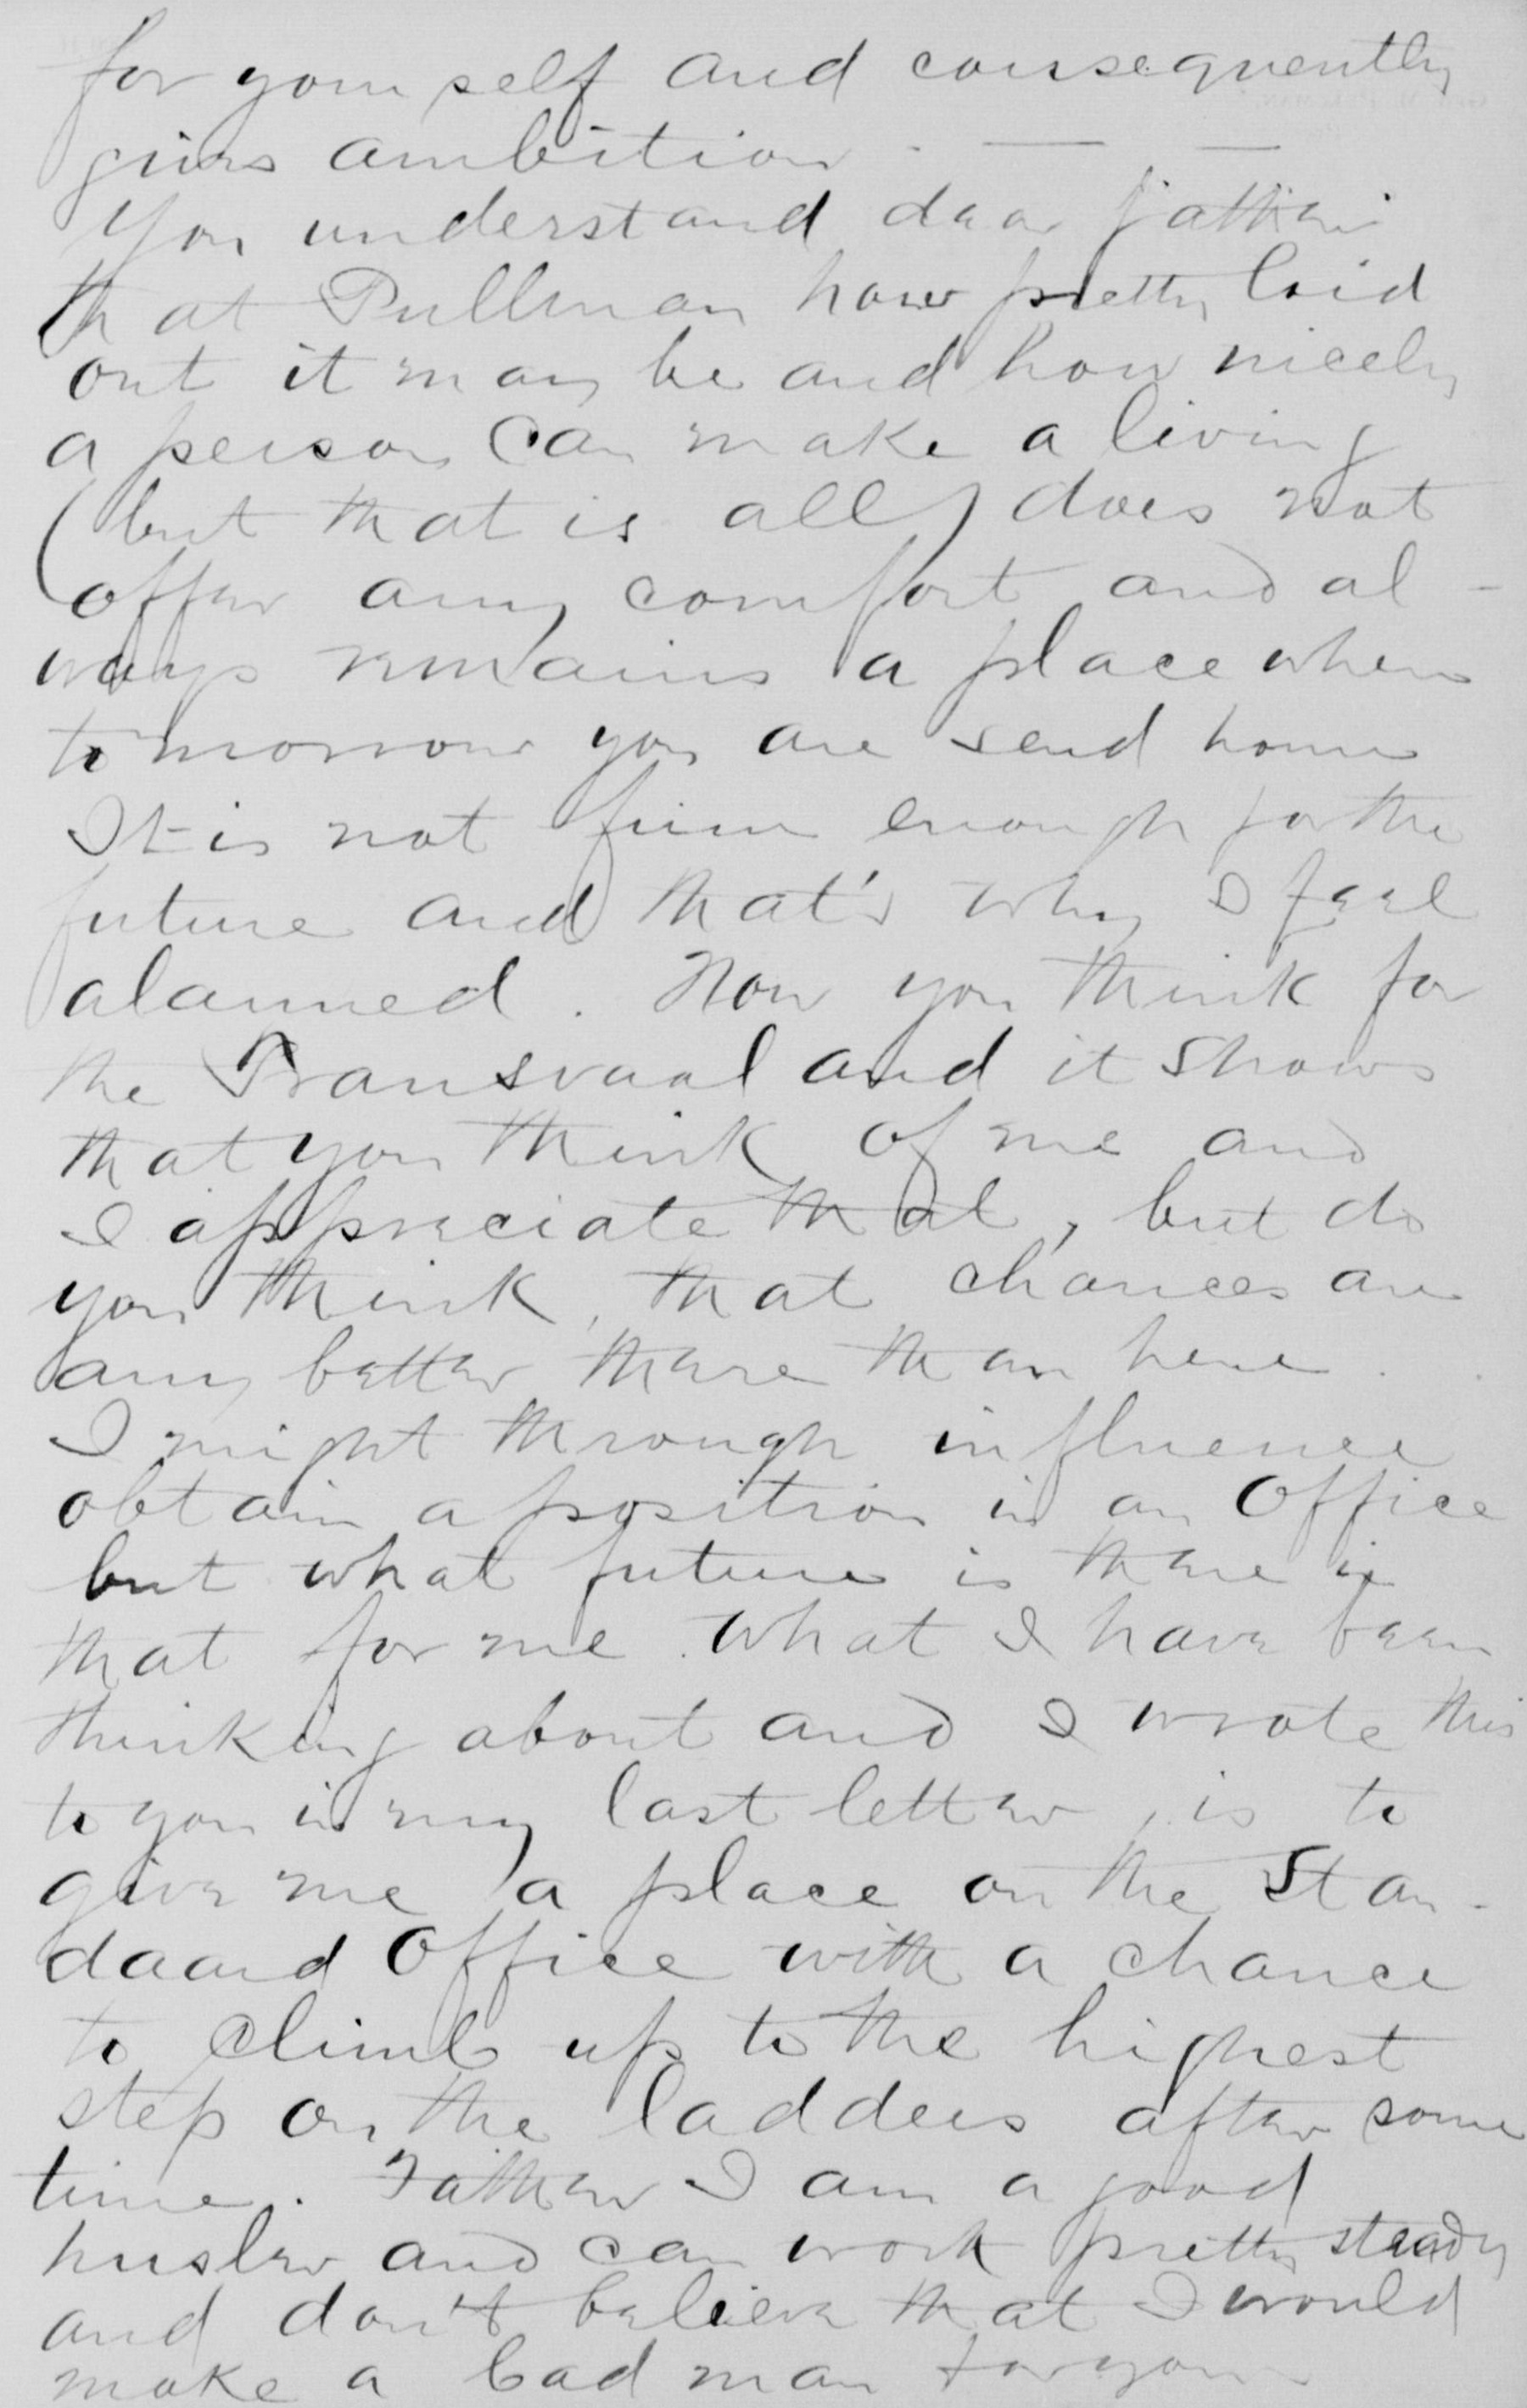 for yourself and consequently
gives ambition. — —
You understand dear father
that Pullman how pretty laid
out it may be and how nicely
a person can make a living
(but that is all) does not
offer any comfort and al-
ways remains a place where
to morrow you are send home
It is not firm enough for the
future and that's why I feel
alarmed. Now you think for
the Transvaal and it shows
that you think of me and
I appreciate that, but do
you think, that chances are
any better there than here.
I might through influence
obtain a position in an Office
but what future is there in
that for me. What I have been
thinking about and I wrote this
to you in my last letter, is to
give me a place on the Stan-
daard Office with a chance
to climb up to the highest
step on the ladders after some
time. Father I am a good
husler and can work pretty steady
and don't believe that I would
make a bad man for you